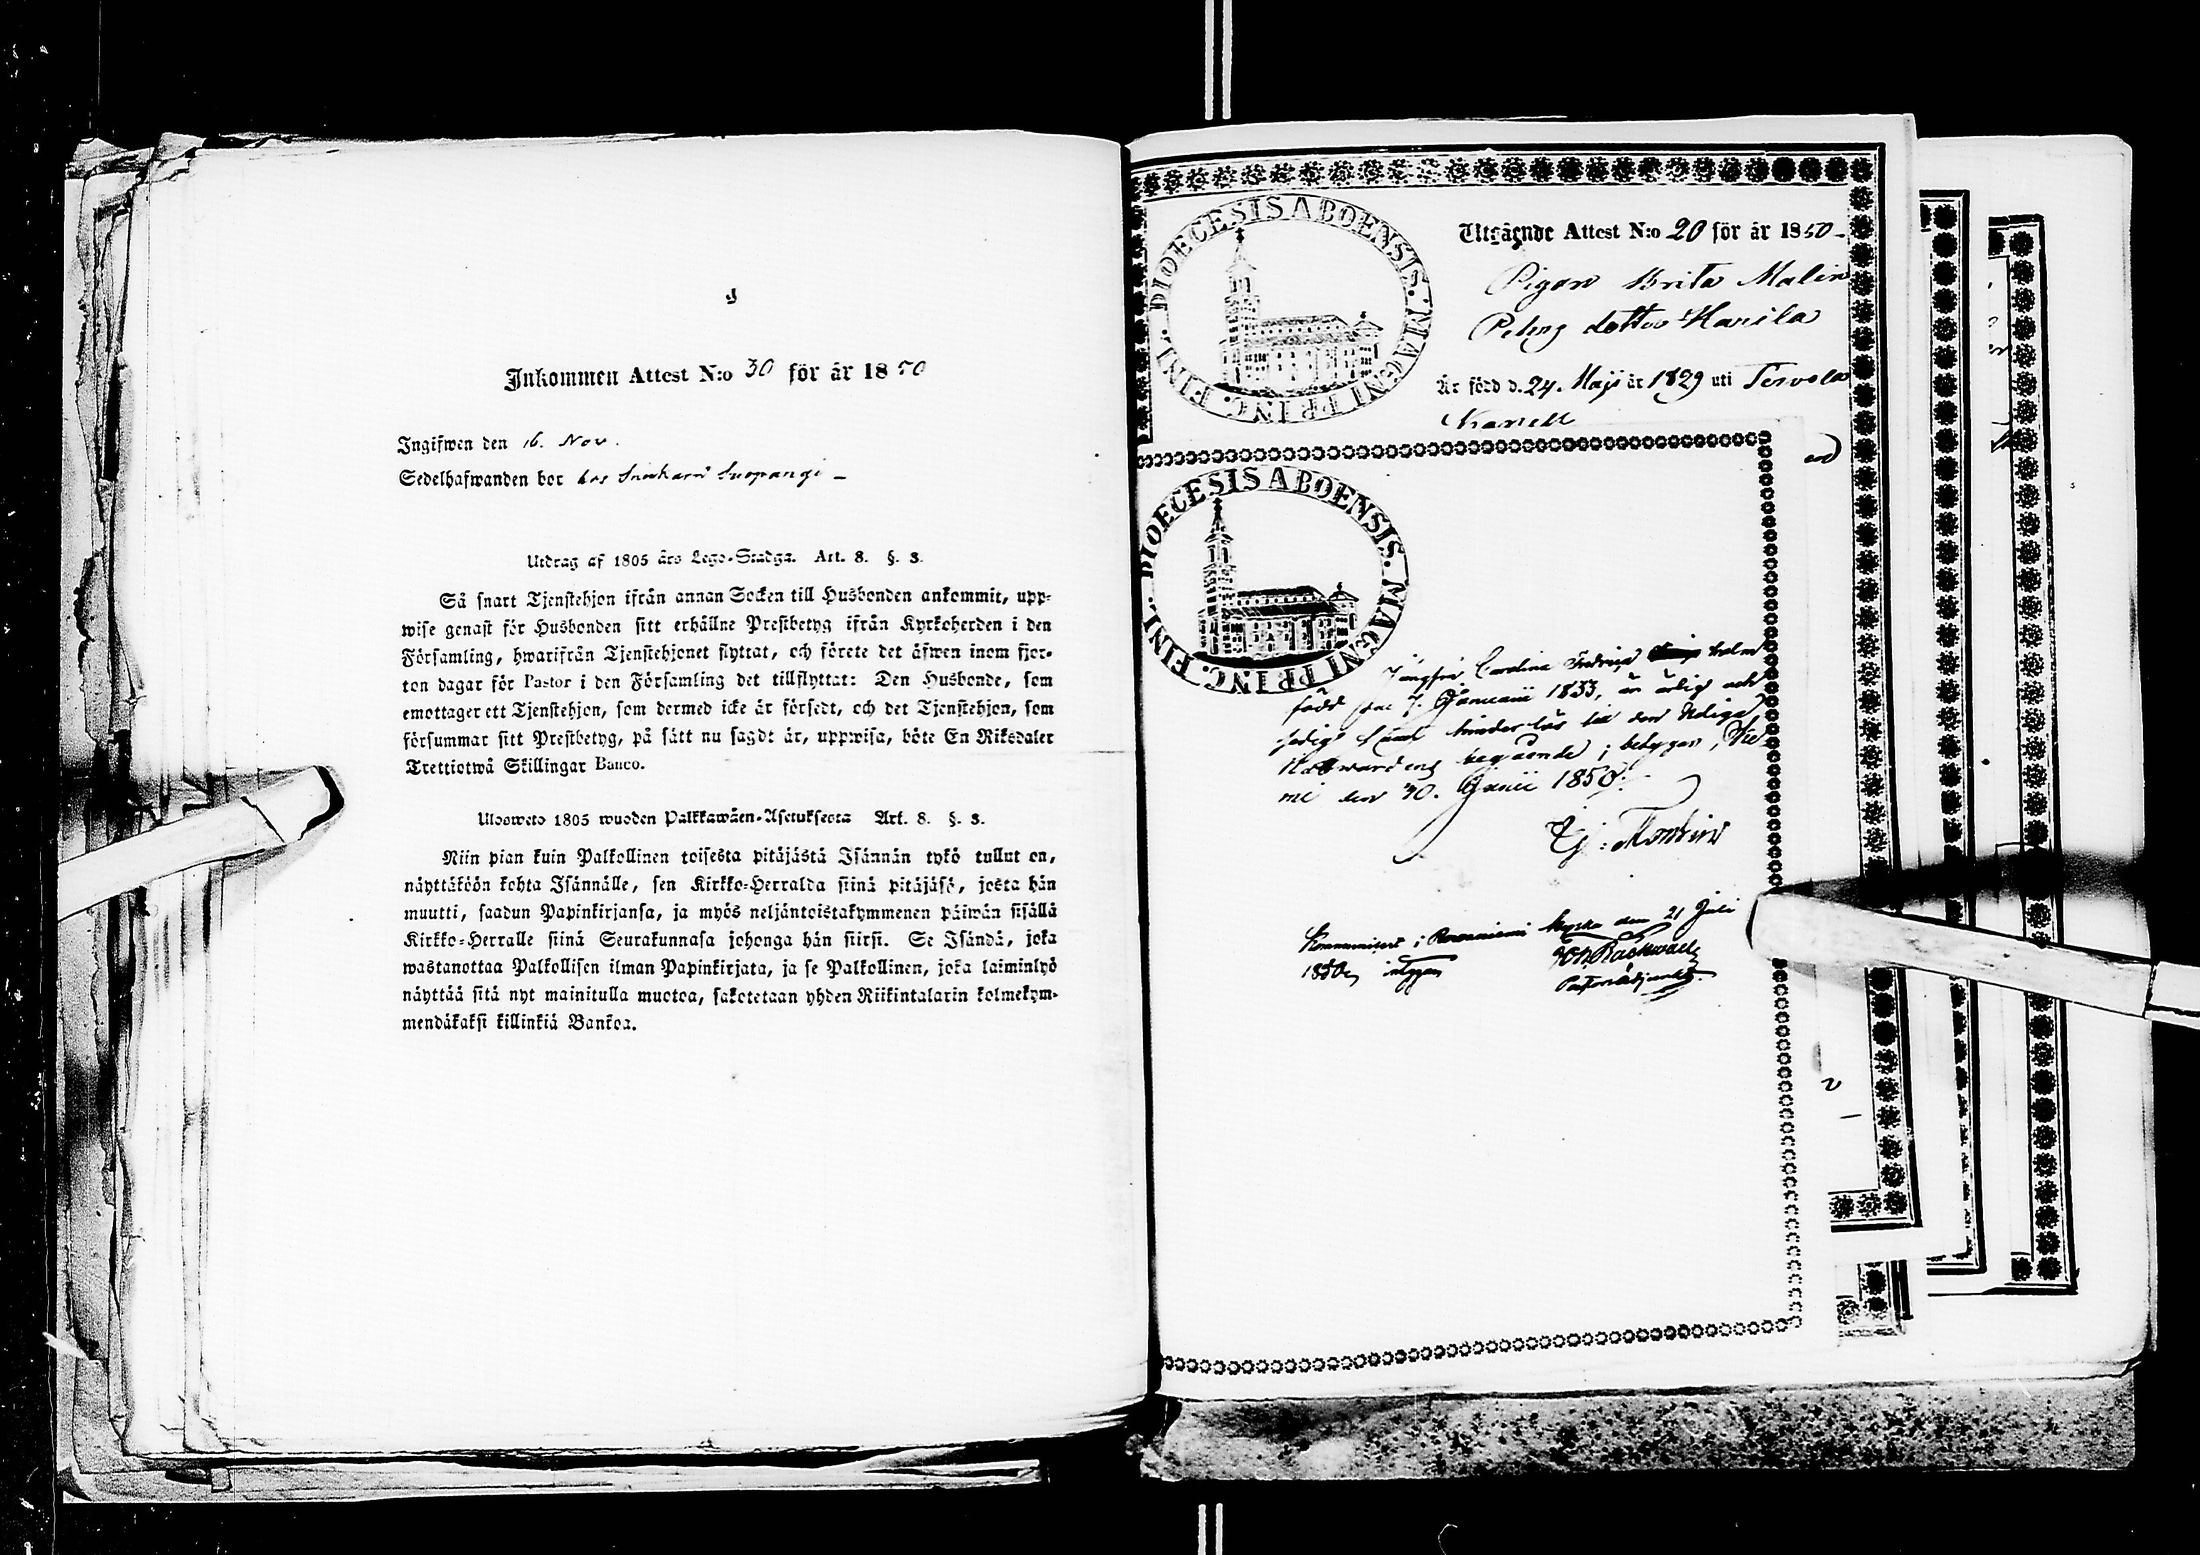 Inkommen Attest N:o 30 för år 1850
Ingifwen den 16. Nov.
Sedelhafwanden bor hos Snickarn Suopangi –
Utdrag af 1805 års Lego-Stadga. Art. 8. §. 3.
Så snart Tjenstehjon ifrån annan Socken till Husbonden ankommit, upp-
wise genast för Husbonden sitt erhållne Prestbetyg ifrån Kyrkoherden i den
Församling, hwarifrån Tjenstehjonet flyttat, och förete det äfwen inom fjor-
ton dagar för Pastor i den Församling det tillflyttat: Den Husbonde, som
emottager ett Tjenstehjon, som dermed icke är försedt, och det Tjenstehjon, som
försummar sitt Prestbetyg, på sätt nu sagdt är, uppwisa, böte En Riksdaler
Trettiotwå Skillingar Banco.
Uloswеto 1805 wuoden Palkkawäen-Asetuksesta Art. 8. §. 3.
Niin pian kuin Palkollinen toisesta pitäjästä Isännän tykö tullut on,
näyttäköön kohta Isännälle, sen Kirkko-Herralda siinä pitäjäsä, josta hän
muutti, saadun Papinkirjansa, ja myös neljäntoistakymmenen päiwän sisällä
Kirkko-Herralle siinä Seurakunnasa johonga hän siirsi. Se Isändä, joka
wastanottaa Palkollisen ilman Papinkirjata, ja se Palkollinen, joka laiminlyö
näyttää sitä nyt mainitulla muotoa, sakotetaan yhden Riikintalarin kolmekym-
mendäkaksi killinkiä Bankoa.
DIOECESIS ABOENSIS. MAGNI PRINC. FINL.
Utgående Attest N:o 20 för år 1850
Pigan Brita Malin
Pehrs dotter Hanila
Är född d. 24. Maji år 1829 uti Tervola
Kapell
DIOECESIS ABOENSIS. MAGNI PRINC. FINL.
Jungfru Carolina holm
född den 7. Januarii 1833, är ärlig och
ledig samt hinderlös till den Heliga
Nattwardens begående; betygar, Kie
mi den 30. Junii 1850.
Kommunicerat i Rovaniemi Kyrka den 21 Juli
1850, intygar
Joh. Backwall
Pastors Adjunct.